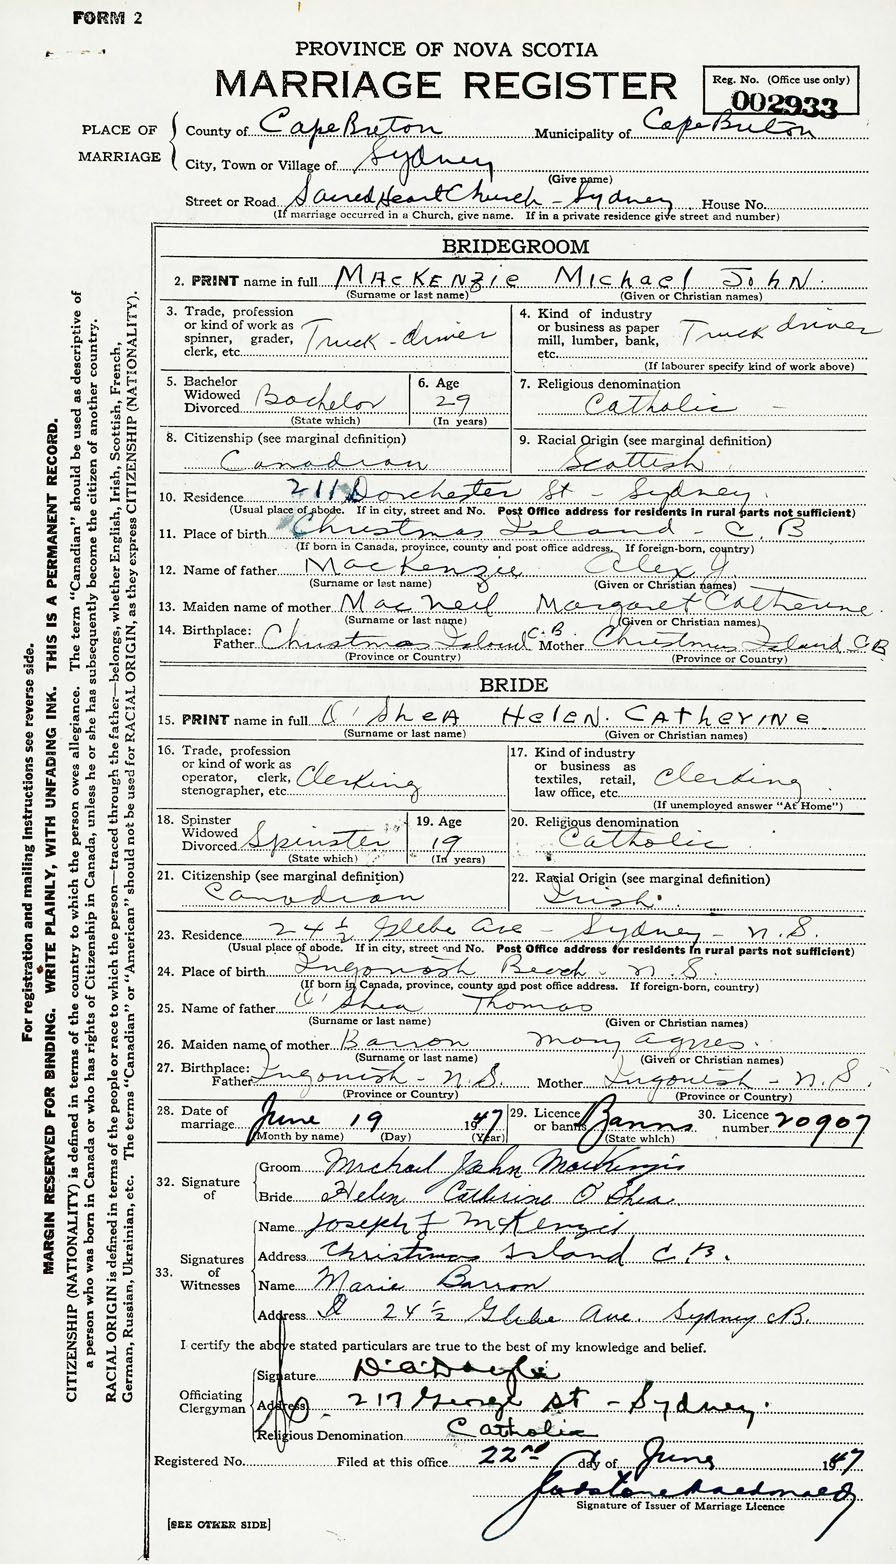 FORM 2
PROVINCE OF NOVA SCOTIA
MARRIAGE REGISTER
Reg. No. (Office use only)
002933
PLACE OF MARRIAGE
County of Cape Breton Municipality of Cape Breton
City, Town or Village of Sydney
(Give name)
Street or Road Sacred Heart Church - Sydney House No.
(If marriage occurred in a Church, give name. If in a private residence give street and number)
BRIDEGROOM
2. PRINT name in full MacKENzie Michael JohN
(Surname or last name) (Given or Christian names)
3. Trade, profession or kind of work as spinner, grader, clerk, etc. Truck-driver
4. Kind of industry or business as paper mill, lumber, bank, etc. Truck driver
(If labourer specify kind of work above)
5. Bachelor Widowed Divorced Bachelor
(State which)
6. Age 29
(In years)
7. Religious denomination Catholic
8. Citizenship (see marginal definition) Canadian
9. Racial Origin (see marginal definition) Scottish
10. Residence 211 Dorchester St - Sydney
(Usual place of abode. If in city, street and No. Post Office address for residents in rural parts not sufficient)
11. Place of birth Christmas Island - C. B
(If born in Canada, province, county and post office address. If foreign-born, country)
12. Name of father MacKenzie Alex J.
(Surname or last name) (Given or Christian names)
13. Maiden name of mother MacNeil Margaret Catherine
(Surname or last name) (Given or Christian names)
14. Birthplace: Father Christmas Island C.B. Mother Christmas Island C B
(Province or Country) (Province or Country)
BRIDE
15. PRINT name in full O'SheA HeleN. CATheriNe
(Surname or last name) (Given or Christian names)
16. Trade, profession or kind of work as operator, clerk, stenographer, etc. Clerking
17. Kind of industry or business as textiles, retail, law office, etc. Clerking
(If unemployed answer "At Home")
18. Spinster Widowed Divorced Spinster
(State which)
19. Age 19
(In years)
20. Religious denomination Catholic
21. Citizenship (see marginal definition) Canadian
22. Racial Origin (see marginal definition) Irish
23. Residence 24 ½ Glebe Ave - Sydney - N.S.
(Usual place of abode. If in city, street and No. Post Office address for residents in rural parts not sufficient)
24. Place of birth Ingonish Beach - N.S.
(If born in Canada, province, county and post office address. If foreign-born, country)
25. Name of father O'Shea Thomas
(Surname or last name) (Given or Christian names)
26. Maiden name of mother Barron Mary Agnes.
(Surname or last name) (Given or Christian names)
27. Birthplace: Father Ingonish - N.S. Mother Ingonish - N.S.
(Province or Country) (Province or Country)
28. Date of marriage June 19 1947
(Month by name) (Day) (Year)
29. Licence or banns Banns
(State which)
30. Licence number 20907
32. Signature of
Groom Michael John MacKenzie
Bride Helen Catherine O'Shea
33. Signatures of Witnesses
Name Joseph F McKenzie
Address Christmas Island C.B.
Name Marie Barron
Address 24 ½ Glebe Ave. Sydney C.B.
I certify the above stated particulars are true to the best of my knowledge and belief.
Officiating Clergyman
Signature D. A. Doyle
Address 217 George St - Sydney.
Religious Denomination Catholic
Registered No. Filed at this office 22nd day of June 1947
Gladstone Macdonald
Signature of Issuer of Marriage Licence
[SEE OTHER SIDE]
For registration and mailing instructions see reverse side.
MARGIN RESERVED FOR BINDING. WRITE PLAINLY, WITH UNFADING INK. THIS IS A PERMANENT RECORD.
CITIZENSHIP (NATIONALITY) is defined in terms of the country to which the person owes allegiance. The term "Canadian" should be used as descriptive of
a person who was born in Canada or who has rights of Citizenship in Canada, unless he or she has subsequently become the citizen of another country.
RACIAL ORIGIN is defined in terms of the people or race to which the person—traced through the father—belongs, whether English, Irish, Scottish, French,
German, Russian, Ukrainian, etc. The terms "Canadian" or "American" should not be used for RACIAL ORIGIN, as they express CITIZENSHIP (NATIONALITY).